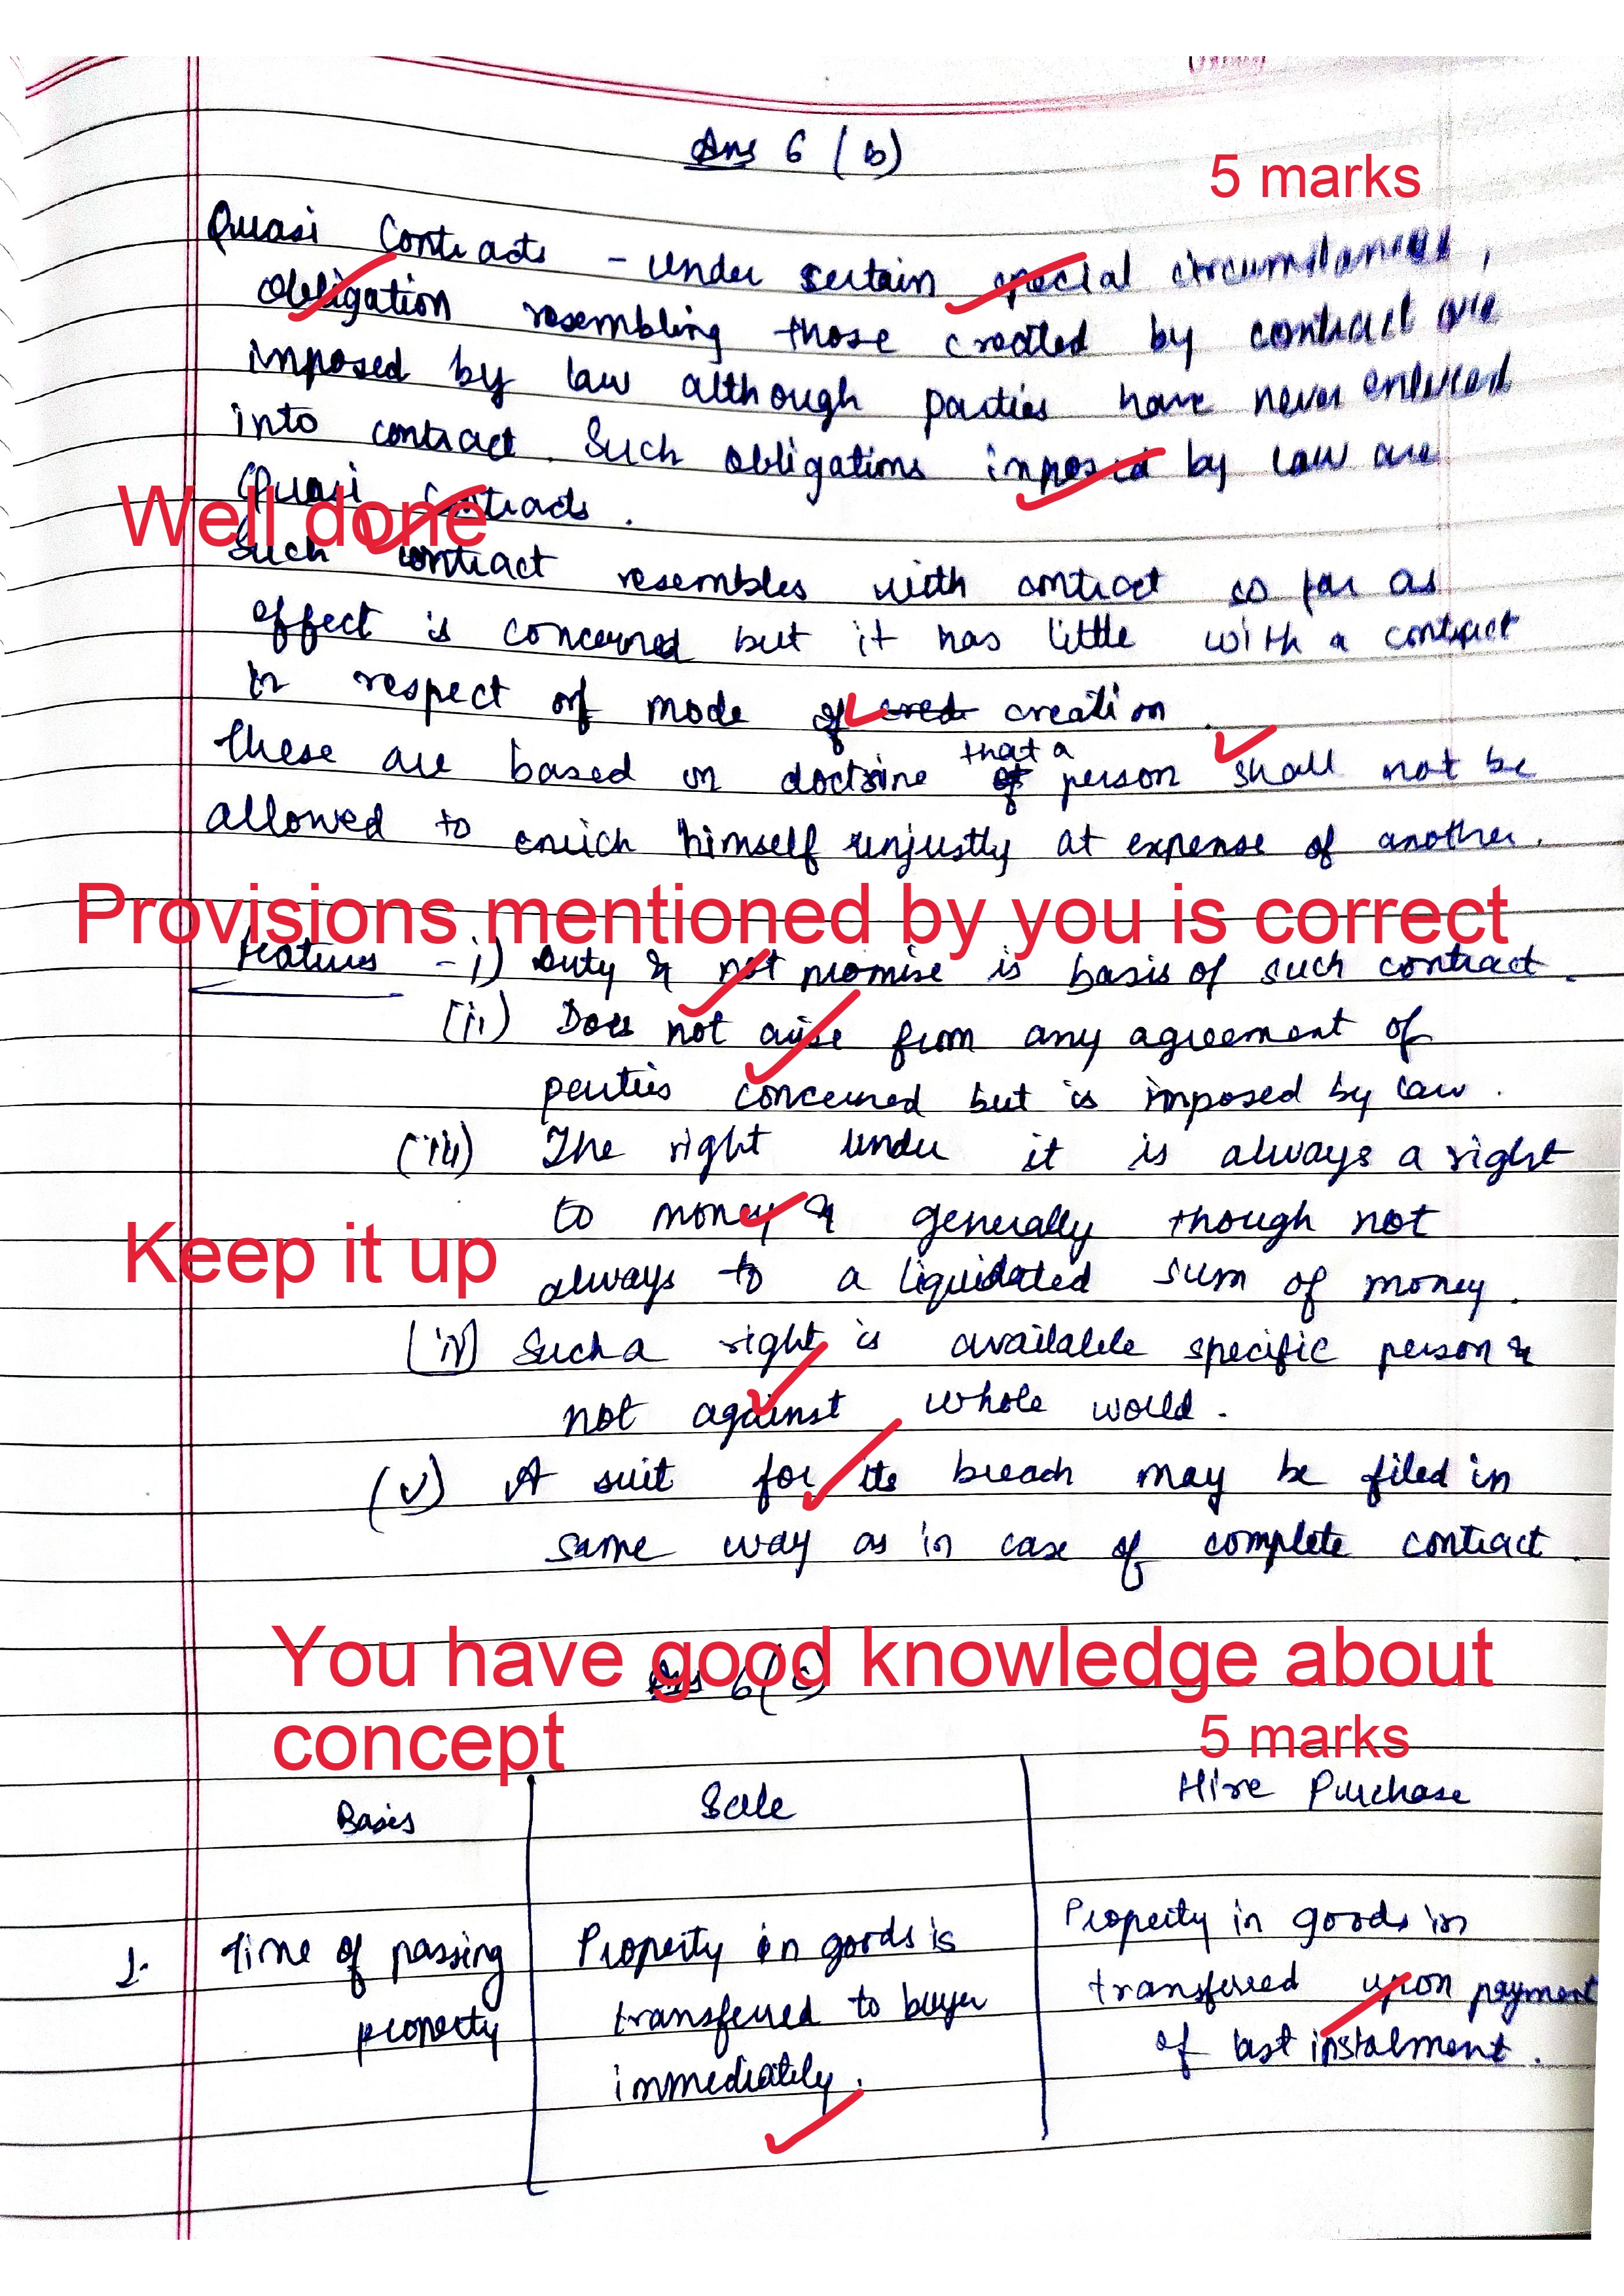 Ans 6 (b)
5 marks
Quasi Contracts - under sertain special circumstances,
obligation resembling those created by contract are
imposed by law although parties have never entered
into contract. Such obligations imposed by law are
Quasi Contracts.
Well done
Such contract resembles with contract so far as
effect is concerned but it has little with a contract
in respect of mode of creation.
These are based on doctrine that a person shall not be
allowed to enrich himself unjustly at expense of another.
Provisions mentioned by you is correct
Features - i) Duty & not promise is basis of such contract.
(ii) Does not arise from any agreement of
parties concerned but is imposed by law.
(iii) The right under it is always a right
to money & generally though not
Keep it up
always to a liquidated sum of money.
(iv) Such a right is available specific person &
not against whole would.
(v) A suit for its breach may be filed in
same way as in case of complete contract.
You have good knowledge about
Ans 6(c)
concept
5 marks
Basis Sale Hire Purchase
1. Time of passing property
Property in goods is
transferred to buyer
immediately.
Property in goods in
transferred upon payment
of last instalment.